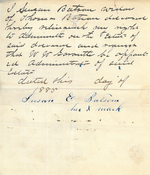 I Susan Batson widow
of Thomas Batson deceased
hereby relinquish my right
to Administer on the Estate of
said deceased and request
that W W be appoint
ed Administrator of said
Estate
dated this day of
1880
Susan E Batson
her X mark